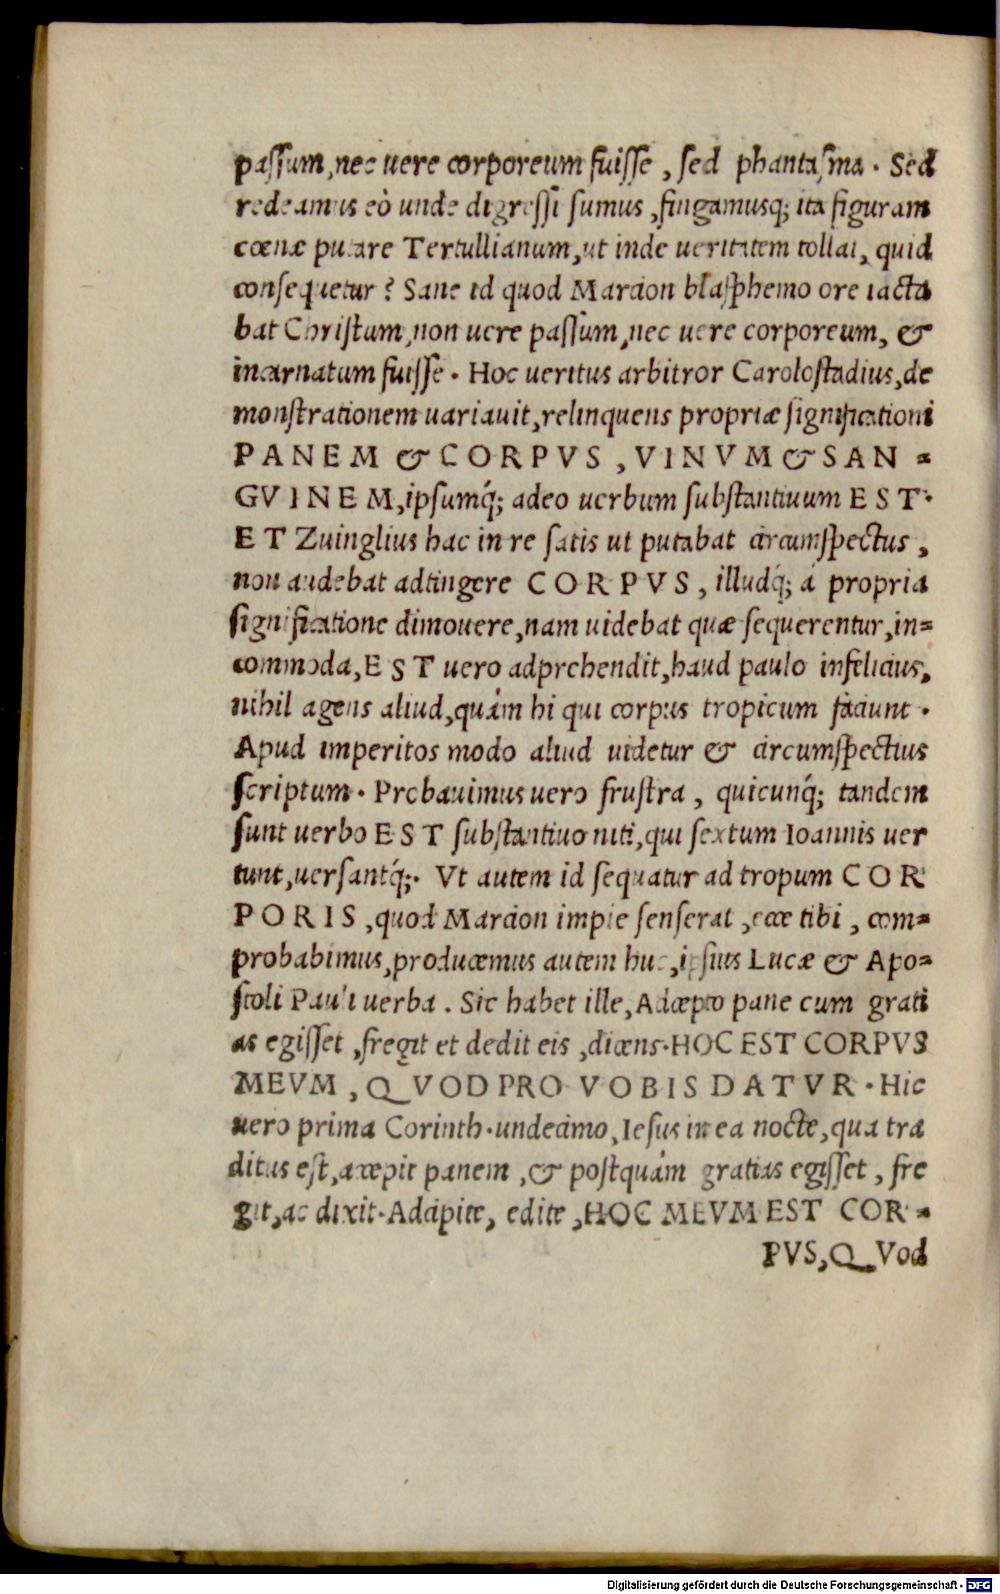 paſſum, nec uere corporeum fuiſſe, ſed phantaſma. Sed
redeamus eò unde digreſſi ſumus, fingamusq; ita figuram
cœnæ putare Tertullianum, ut inde ueritatem tollat, quid
conſequetur? Sane id quod Marcion blaſphemo ore iacta
bat Chriſtum, non uere paſſum, nec uere corporeum, &
incarnatum fuiſſe. Hoc ueritus arbitror Caroloſtadius, de
monſtrationem uariauit, relinquens propriæ ſignificationi
PANEM & CORPVS, VINVM & SAN-
GVINEM, ipſumq́; adeo uerbum ſubſtantiuum EST.
ET Zuinglius hac in re ſatis ut putabat circumſpectus,
non audebat adtingere CORPVS, illudq́; á propria
ſignificatione dimouere, nam uidebat quæ ſequerentur, in=
commoda, EST uero adprehendit, haud paulo infelicius,
nihil agens aliud, quám hi qui corpus tropicum faciunt.
Apud imperitos modo aliud uidetur & circumſpectius
ſcriptum. Probauimus uero fruſtra, quicunq́; tandem
ſunt uerbo EST ſubſtantiuo niti, qui ſextum Ioannis uer
tunt, uerſantq́;. Vt autem id ſequatur ad tropum COR
PORIS, quod Marcion impie ſenſerat, ecce tibi, com=
probabimus, producemus autem huc, ipſius Lucæ & Apo=
ſtoli Pauli uerba. Sic habet ille, Accepto pane cum grati
as egiſſet, fregit et dedit eis, dicens. HOC EST CORPVS
MEVM, QVOD PRO VOBIS DATVR. Hic
uero prima Corinth. undecimo, Ieſus in ea nocte, qua tra
ditus eſt, accepit panem, & poſtquám gratias egiſſet, fre
git, ac dixit. Accipite, edite, HOC MEVM EST COR-
PVS, QVod
Digitalisierung gefördert durch die Deutsche Forschungsgemeinschaft - DFG